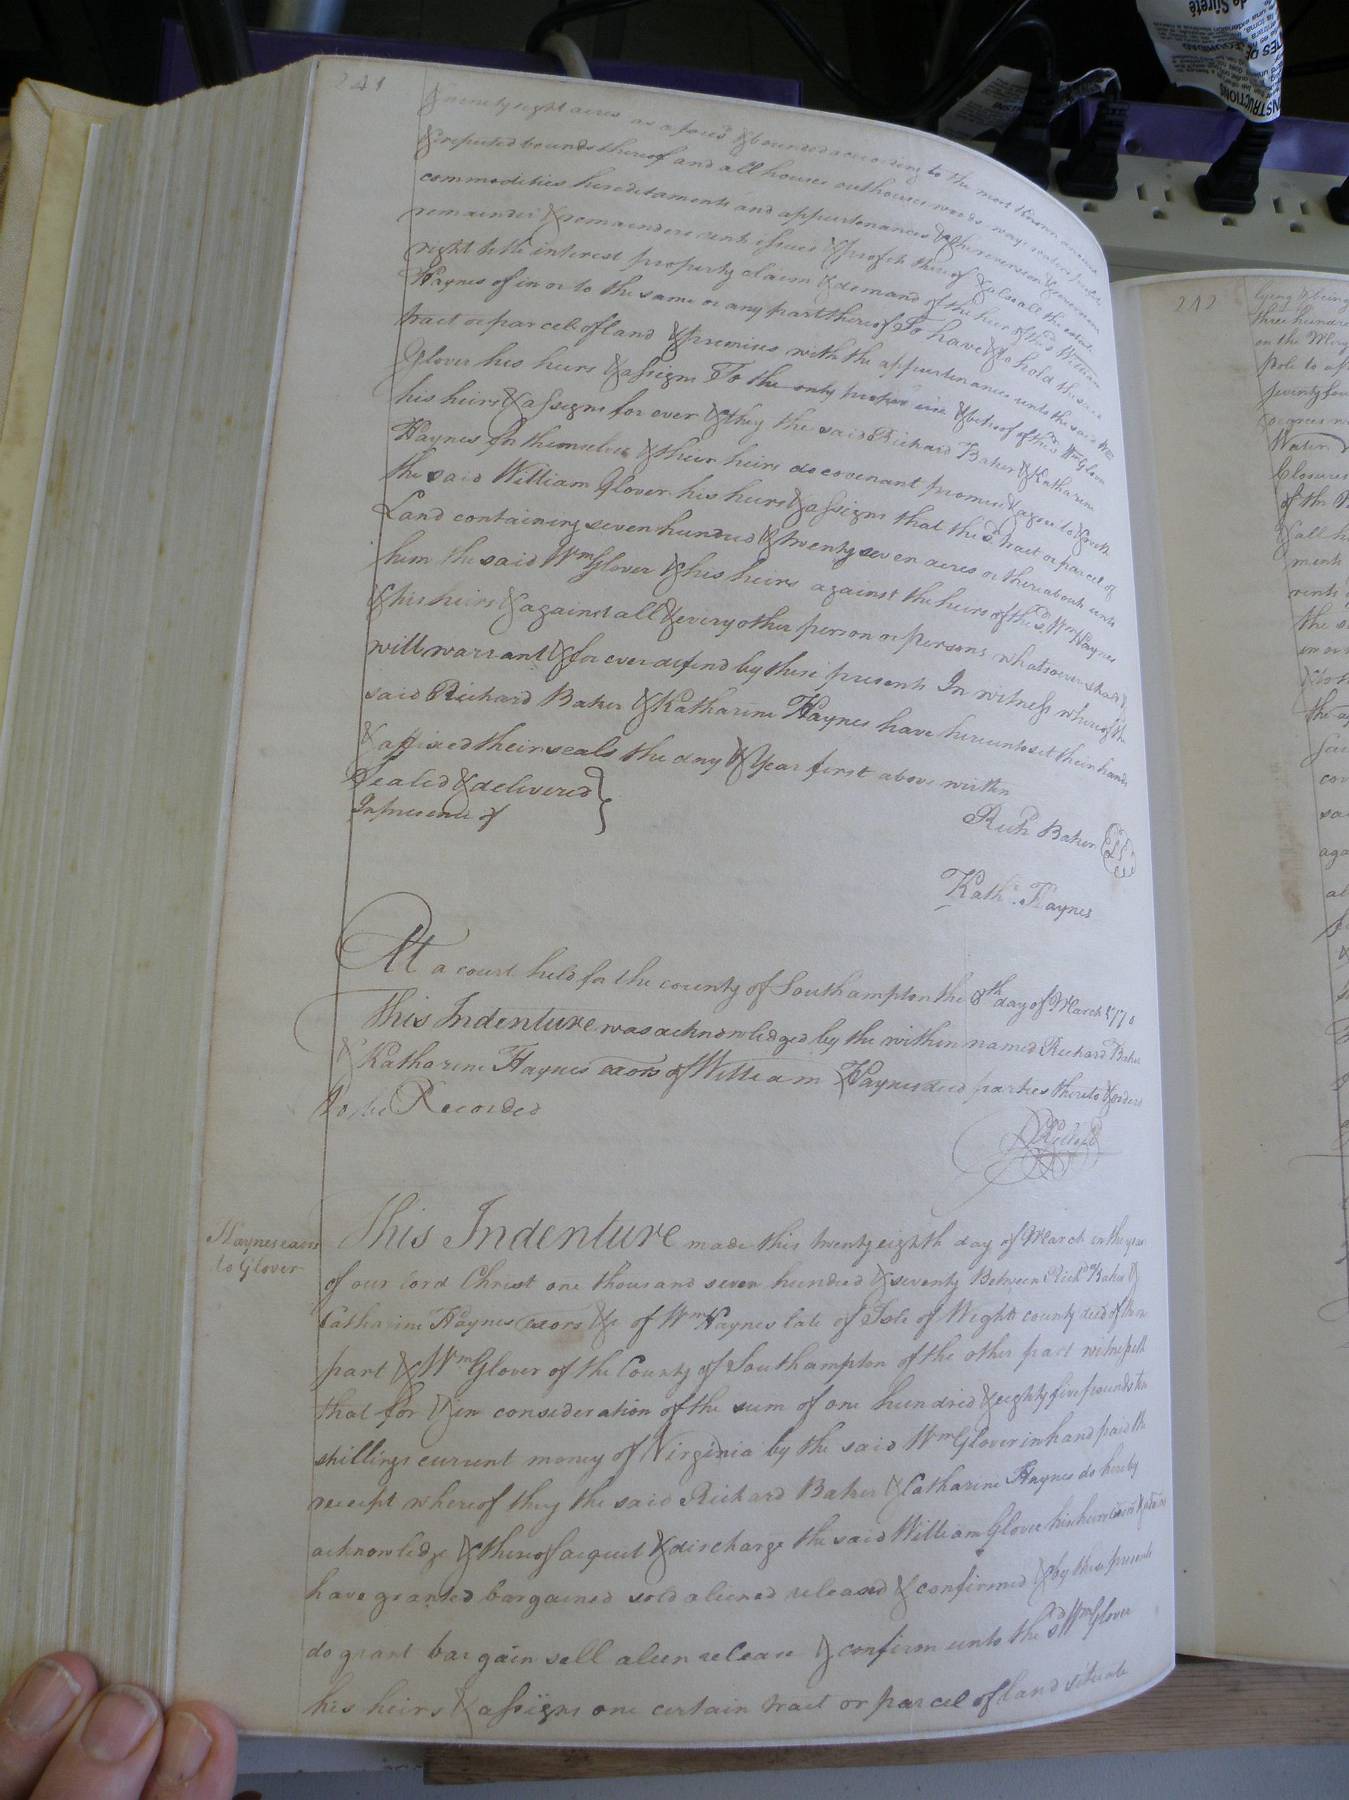 241
& ninety eight acres as afores.d & bounded according to the most known ancient
& reputed bounds thereof and all houses outhouses woods ways waters
commodities hereditaments and appurtenances & the reversion & reversions
remainder & remainders rents issues & profits thereof & also all the estate
right title interest property claim & demand of the heirs of the s.d William
Haynes of in or to the same or any part thereof To have & to hold the said
tract or parcel of land & premises with the appurtenances unto the said Wm
Glover his heirs & assigns To the only proper use & behoof of the s.d Wm Glover
his heirs & assigns for ever & they the said Richard Baker & Katharine
Haynes for themselves & their heirs do covenant promise & agree to & with
the said William Glover his heirs & assigns that the s.d tract or parcel of
Land containing seven hundred & twenty seven acres or thereabouts unto
him the said Wm Glover & his heirs against the heirs of the s.d Wm Haynes
& his heirs & against all & every other person or persons whatsoever shall &
will warrant & for ever defend by these presents In witness whereof the
said Richard Baker & Katharine Haynes have hereunto set their hands
& affixed their seals the day & Year first above written
Sealed & delivered
In presence of
Rich.d Baker LS
Kath.e Haynes
At a court held for the county of Southampton the 8th day of March 1770
This Indenture was acknowledged by the within named Richard Baker
& Katharine Haynes exors of William Haynes dec.d parties thereto & ordered
to be Recorded
Haynes exors
to Glover
This Indenture made this twenty eighth day of March in the year
of our Lord Christ one thousand seven hundred & seventy Between Rich.d Baker &
Catharine Haynes exors &c of Wm Haynes late of Isle of Wight county dec.d of the one
part & Wm Glover of the County of Southampton of the other part witnesseth
that for & in consideration of the sum of one hundred & eighty five pounds ten
shillings current money of Virginia by the said Wm Glover in hand paid the
receipt whereof they the said Richard Baker & Catharine Haynes do hereby
acknowledge & thereof acquit & discharge the said William Glover his heirs
have granted bargained sold aliened released & confirmed & by these presents
do grant bargain sell alien release & confirm unto the s.d Wm Glover
his heirs & assigns one certain tract or parcel of land situate
242
lying & being
three hundred
on the
pole to
seventy four
degrees
Water
of the
& all
ment
rents
the
in or
the
said